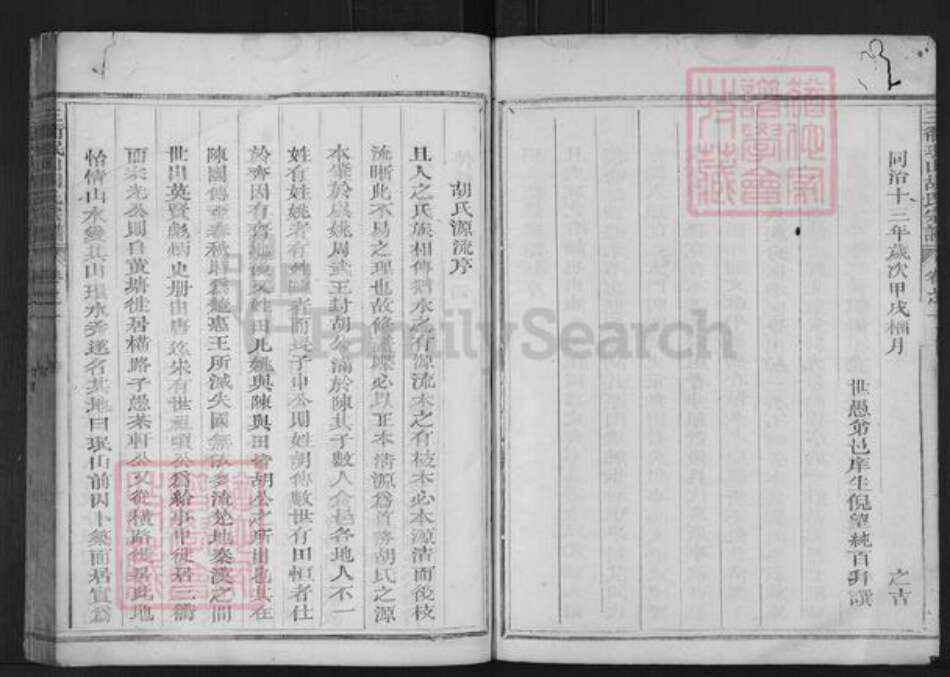 同治十三年歲次甲戌桐月
之吉
世愚弟邑庠生倪望純百拜譔
胡氏源流序
且人之氏族相傳猶水之有源流木之有枝本必本源清而後枝
流晰此不易之理也故修譜牒必以正本清源為首務胡氏之源
本肇於虞姚周武王封胡公滿於陳其子數人食邑各地人不一
姓有姓姚者有姓陳者而其子申公則姓胡傳數世有田恒者仕
於齊因有齊地後又姓田凡姚與陳與田皆胡公之所出也其在
陳國傳至春秋時為楚惠王所滅失國無依多流楚地秦漢之間
世出英賢彪炳史册由唐迄宋有世祖頃公為給事中徙居三衢
而宗光公則自黃塘徙居橫路子愚茶軒公又從橫路徙居此地
怡情山水變其山環水秀遂名其地曰珉山前因卜築而居實為
FamilySearch